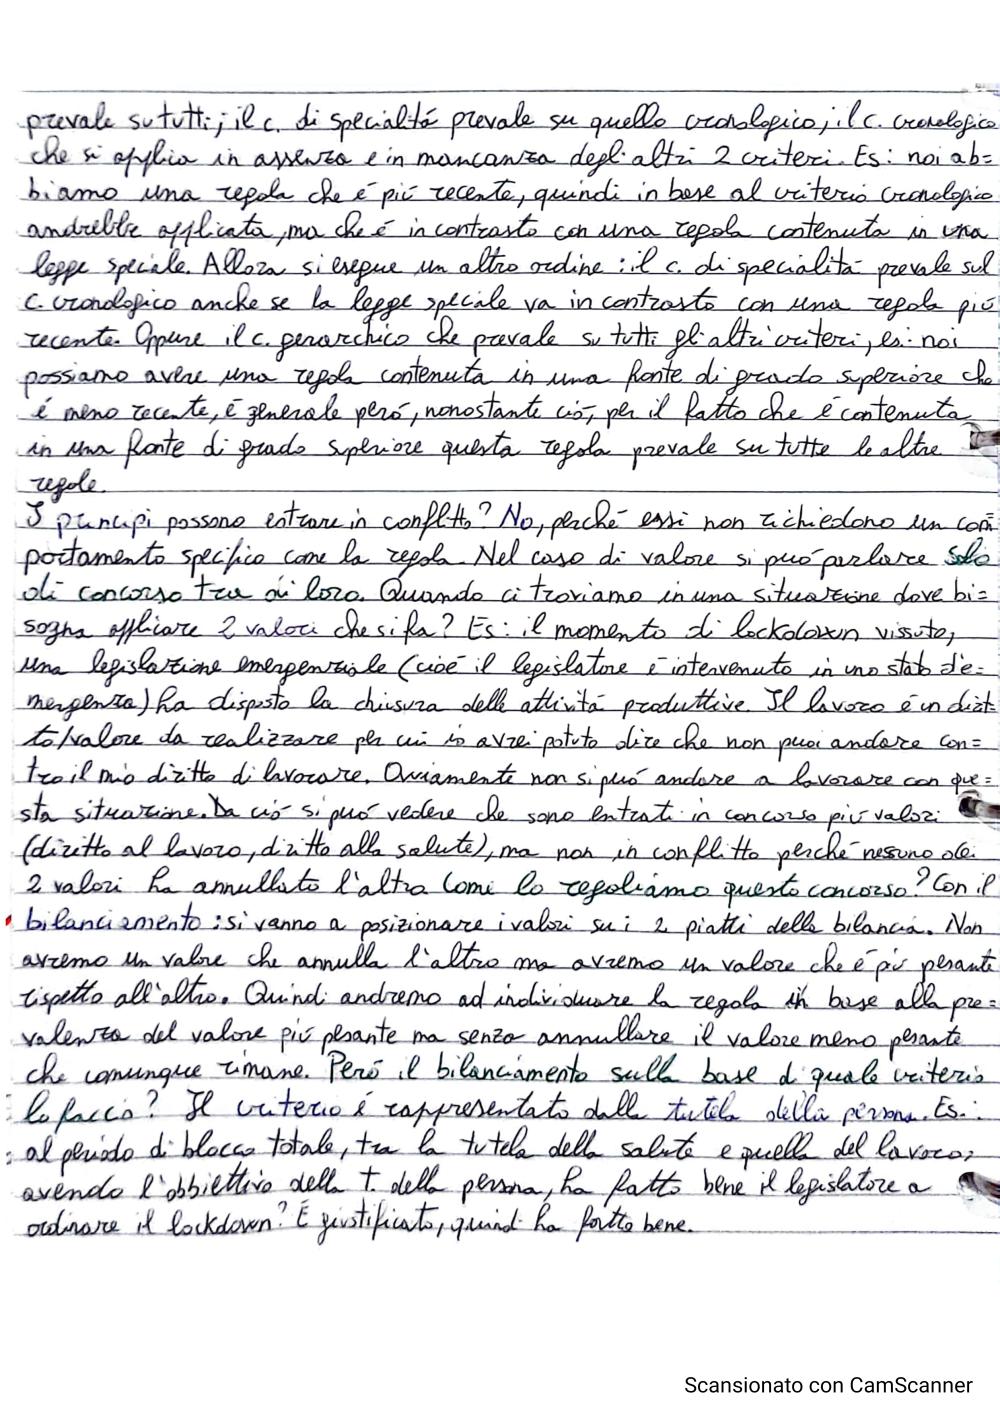 prevale su tutti; il c. di specialitá prevale su quello cronologico; il c. cronologico
che si applica in assenza e in mancanza degli altri 2 criteri. Es: noi ab=
biamo una regola che é piú recente, quindi in base al criterio cronologico
andrebbe applicata, ma che é in contrasto con una regola contenuta in una
legge speciale. Allora si esegue un altro ordine: il c. di specialitá prevale sul
c. cronologico anche se la legge speciale va in contrasto con una regola piú
recente. Oppure il c. gerarchico che prevale su tutti gli altri criteri, es: noi
possiamo avere una regola contenuta in una fonte di grado superiore che
é meno recente, é generale peró, nonostante ció, per il fatto che é contenuta
in una fonte di grado superiore questa regola prevale su tutte le altre
regole.
I principi possono entrare in conflitto? No, perché essi non richiedono un com=
portamento specifico come la regola. Nel caso di valore si puó parlare solo
di concorso tra di loro. Quando ci troviamo in una situazione dove bi=
sogna applicare 2 valori che si fa? Es: il momento di lockdown vissuto,
una legislazione emergenziale (cioé il legislatore é intervenuto in uno stato d'e=
mergenza) ha disposto la chiusura delle attivitá produttive. Il lavoro é un dirit=
to/valore da realizzare per cui io avrei potuto dire che non puoi andare con=
tro il mio diritto di lavorare. Ovviamente non si puó andare a lavorare con que=
sta situazione. Da ció si puó vedere che sono entrati in concorso piú valori
(diritto al lavoro, diritto alla salute), ma non in conflitto perché nessuno dei
2 valori ha annullato l'altro. Come lo regoliamo questo concorso? Con il
bilanciamento: si vanno a posizionare i valori su i 2 piatti della bilancia. Non
avremo un valore che annulla l'altro ma avremo un valore che é piú pesante
rispetto all'altro. Quindi andremo ad individuare la regola in base alla pre=
valenza del valore piú pesante ma senza annullare il valore meno pesante
che comunque rimane. Peró il bilanciamento sulla base di quale criterio
lo faccio? Il criterio é rappresentato dalla tutela della persona. Es.:
al periodo di blocco totale, tra la tutela della salute e quella del lavoro,
avendo l'obbiettivo della t. della persona, ha fatto bene il legislatore a
ordinare il lockdown? É giustificato, quindi ha fatto bene.
Scansionato con CamScanner